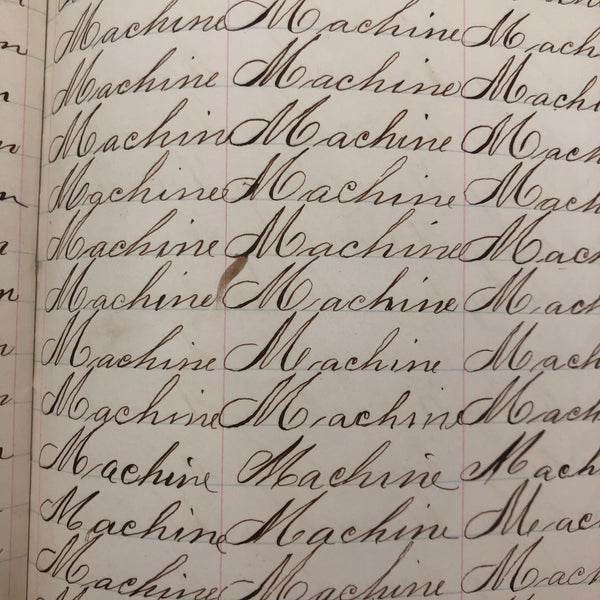 Machine Machine Mach
Machine Machine Machi
Machin Machine Mach
Machine Machine Mach
Machine Machine Mach
Machine Machine Mach
Machine Machine Mach
Machine Machine Mach
Machine Machine Mach
Machine Machine Mac
Machine Machine Mach